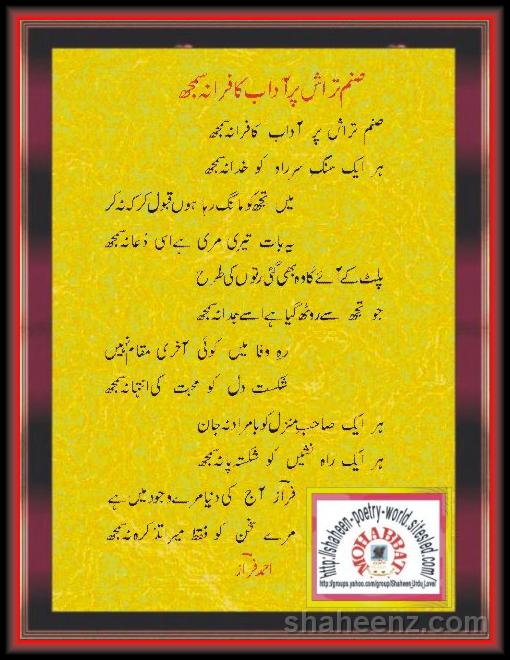 صنم تراش پر آداب کافرانہ سمجھ
صنم تراش پر آداب کافرانہ سمجھ
ہر ایک سنگِ سرراہ کو خدا نہ سمجھ
میں تجھ کو مانگ رہا ہوں قبول کر کہ نہ کر
یہ بات تیری مری ہے اسے دُعا نہ سمجھ
پلٹ کے آئے گا وہ بھی گئی رتوں کی طرح
جو تجھ سے روٹھ گیا ہے اسے جدا نہ سمجھ
رہِ وفا میں کوئی آخری مقام نہیں
شکستِ دل کو محبت کی انتہا نہ سمجھ
ہر ایک صاحبِ منزل کو بامراد نہ جان
ہر ایک راہ نشیں کو شکستہ پا نہ سمجھ
فراز آج کی دنیا مرے وجود میں ہے
مرے سخن کو فقط میرا تذکرہ نہ سمجھ
احمد فراز
http://shaheen-poetry-world.sitesled.com
MOHABBAT
http://groups.yahoo.com/group/Shaheen_Urdu_Love/
shaheenz.com